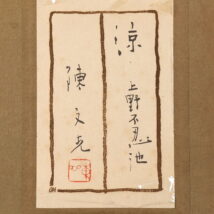 涼
上野不忍池
陳文光